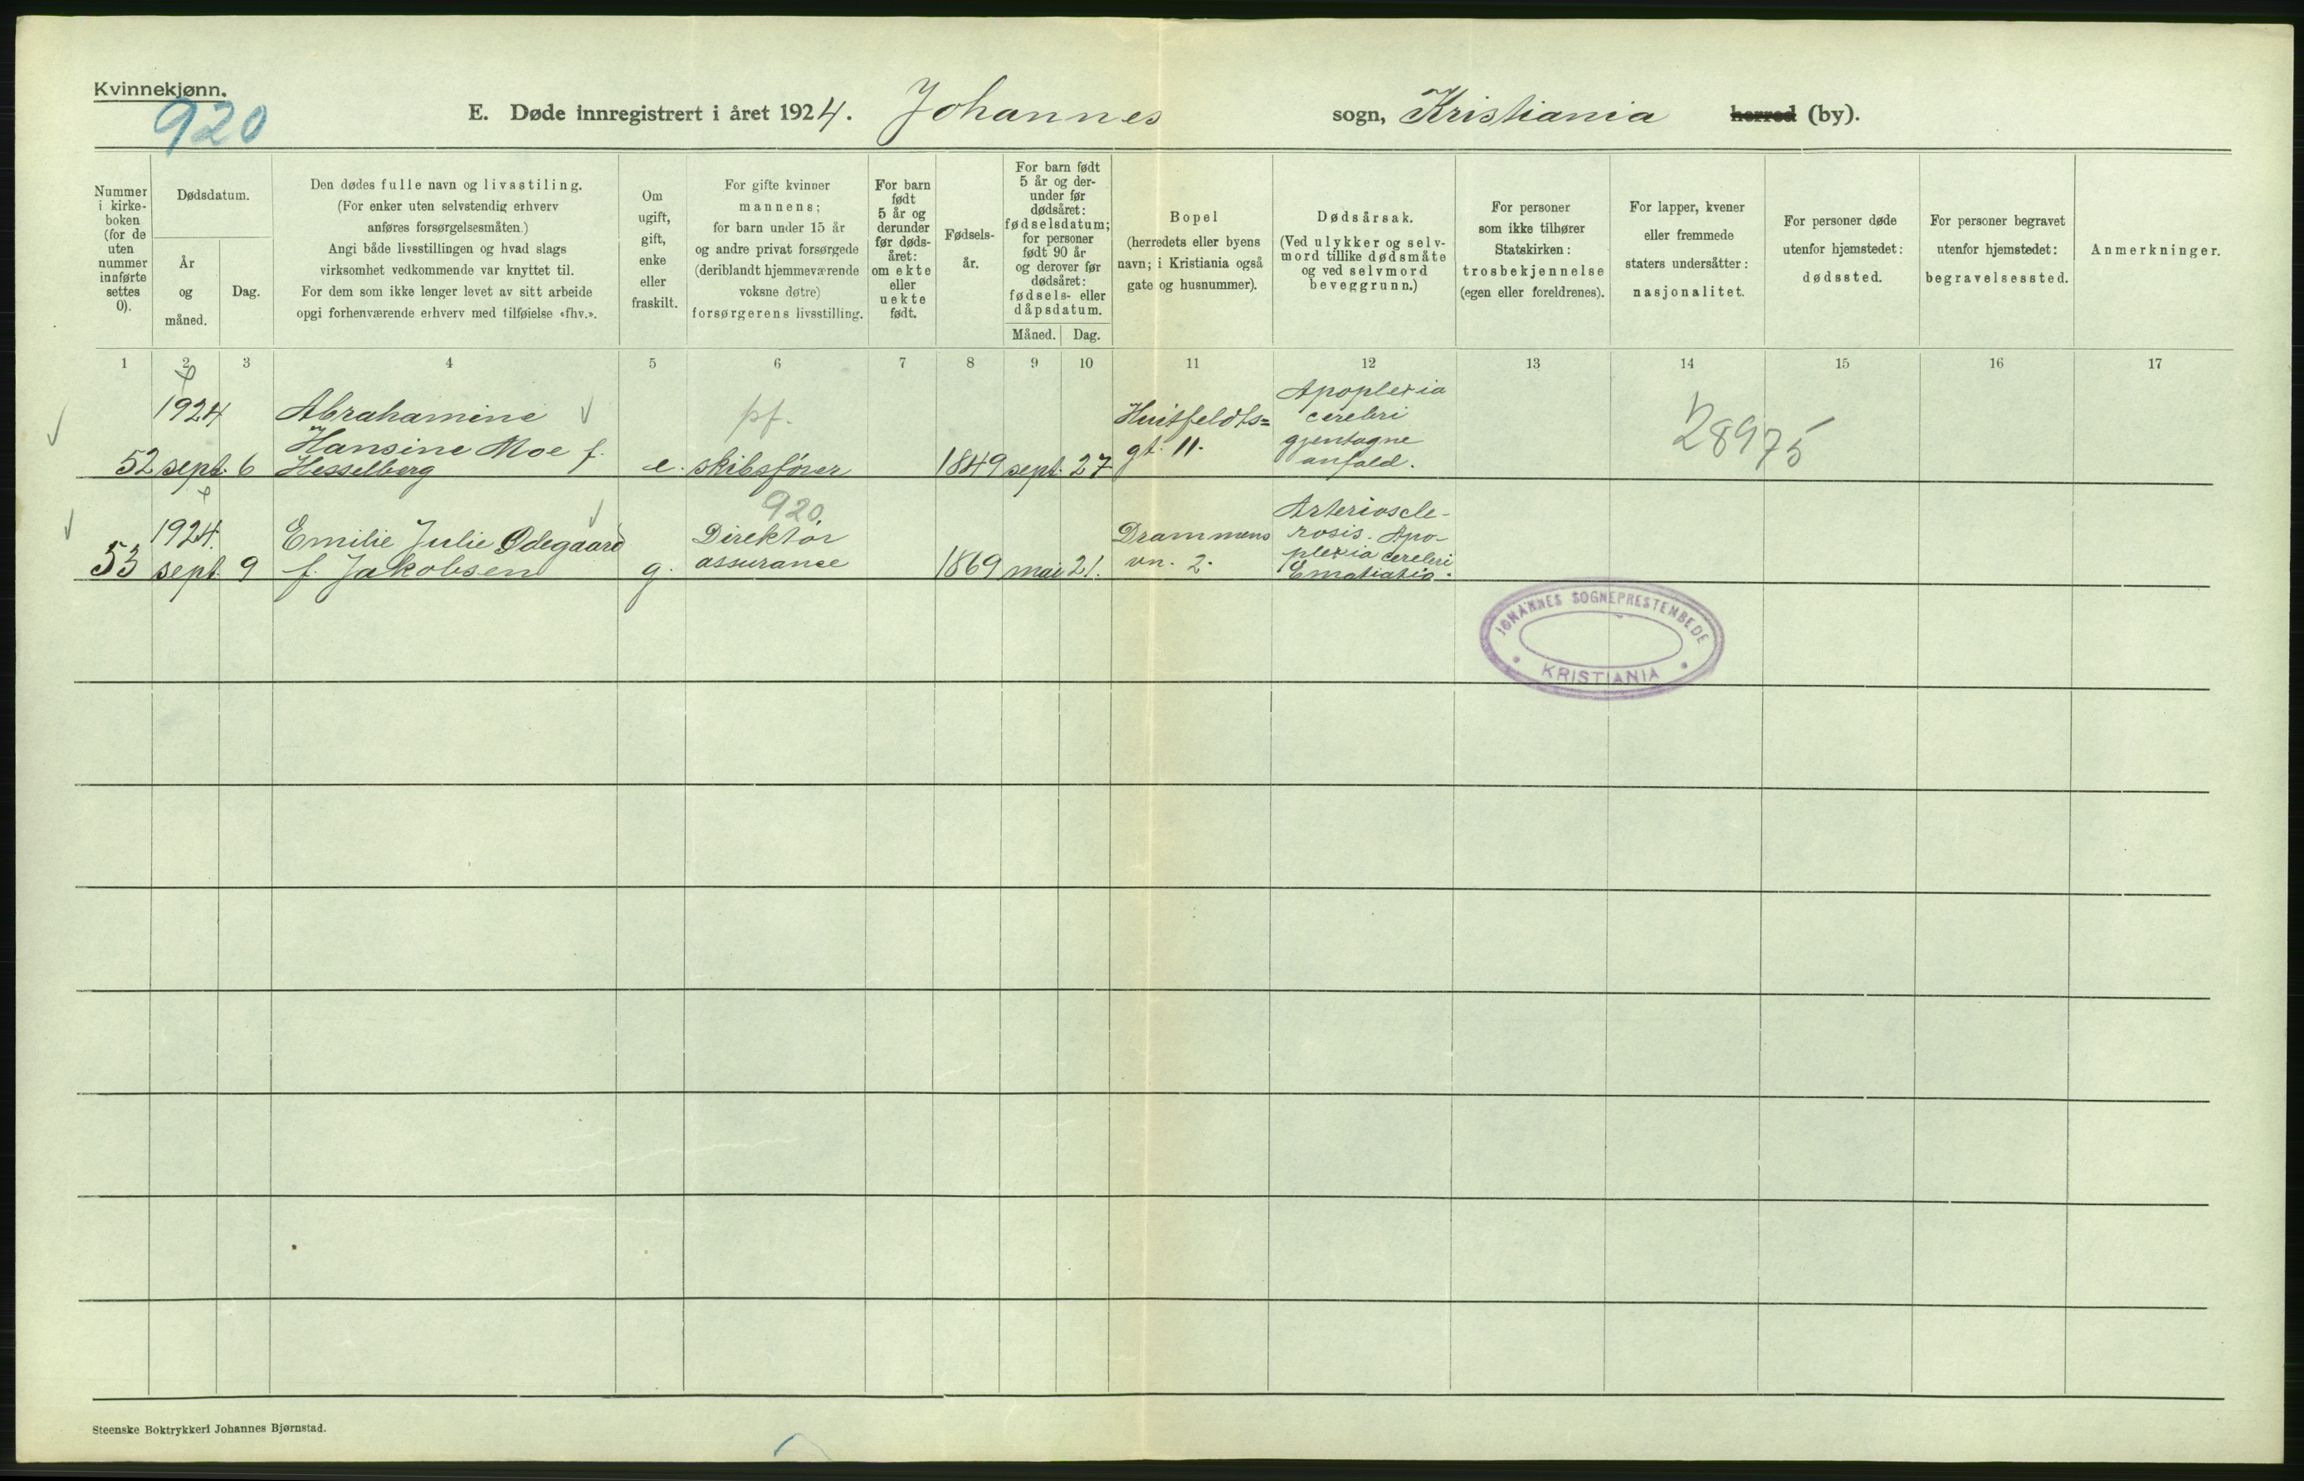 Kvinnekjønn.
920
E. Døde innregistrert i året 1924. Johannes sogn, Kristiania herred (by).
Nummer
i kirke-
boken
(for de
uten
nummer
innførte
settes
0).
Dødsdatum.
År
og
måned.
Dag.
Den dødes fulle navn og livsstiling.
(For enker uten selvstendig erhverv
anføres forsørgelsesmåten.)
Angi både livsstillingen og hvad slags
virksomhet vedkommende var knyttet til.
For dem som ikke lenger levet av sitt arbeide
opgi forhenværende erhverv med tilføielse «fhv.».
Om
ugift,
gift,
enke
eller
fraskilt.
For gifte kvinner
mannens;
for barn under 15 år
og andre privat forsørgede
(deriblandt hjemmeværende
voksne døtre)
forsørgerens livsstilling.
For barn
født
5 år og
derunder
før døds-
året:
om ekte
eller
uekte
født.
Fødsels-
år.
For barn født
5 år og der-
under før
dødsåret:
fødselsdatum;
for personer
født 90 år
og derover før
dødsåret:
fødsels- eller
dåpsdatum.
Måned. Dag.
Bopel
(herredets eller byens
navn; i Kristiania også
gate og husnummer).
Dødsårsak.
(Ved ulykker og selv-
mord tillike dødsmåte
og ved selvmord
beveggrunn.)
For personer
som ikke tilhører
Statskirken:
trosbekjennelse
(egen eller foreldrenes).
For lapper, kvener
eller fremmede
staters undersåtter:
nasjonalitet.
For personer døde
utenfor hjemstedet:
dødssted.
For personer begravet
utenfor hjemstedet:
begravelsessted.
Anmerkninger.
1 2 3 4 5 6 7 8 9 10 11 12 13 14 15 16 17
52
1924
sept. 6
Abrahamine
Hansine Moe f.
Hesselberg
e.
pf.
skibsfører
1849 sept. 27
Huitfeldts=
gt. 11.
Apoplexia
cerebri
gjentagne
anfald.
28975
53
1924.
sept. 9
Emilie Julie Ødegaard
f. Jakobsen
g.
920.
Direktør
assurance
1869 mai 21.
Drammens
vn. 2.
Arterioscle-
rosis. Apo-
plexia cerebri
JOHANNES SOGNEPRESTEMBEDE
KRISTIANIA
Steenske Boktrykkeri Johannes Bjørnstad.